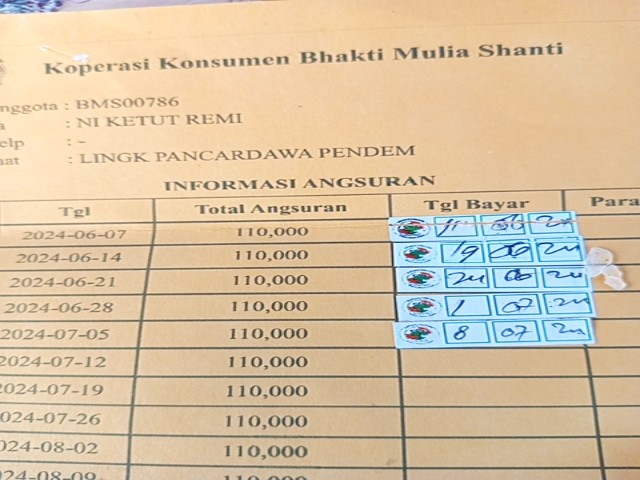 Koperasi Konsumen Bhakti Mulia Shanti
nggota : BMS00786
a : NI KETUT REMI
elp : -
nat : LINGK PANCARDAWA PENDEM
INFORMASI ANGSURAN
Tgl Total Angsuran Tgl Bayar Para
2024-06-07 110,000 11 06 24
2024-06-14 110,000 19 06 24
2024-06-21 110,000 24 06 24
2024-06-28 110,000 1 07 24
2024-07-05 110,000 8 07 24
2024-07-12 110,000
2024-07-19 110,000
024-07-26 110,000
024-08-02 110,000
24-08-09 110,000